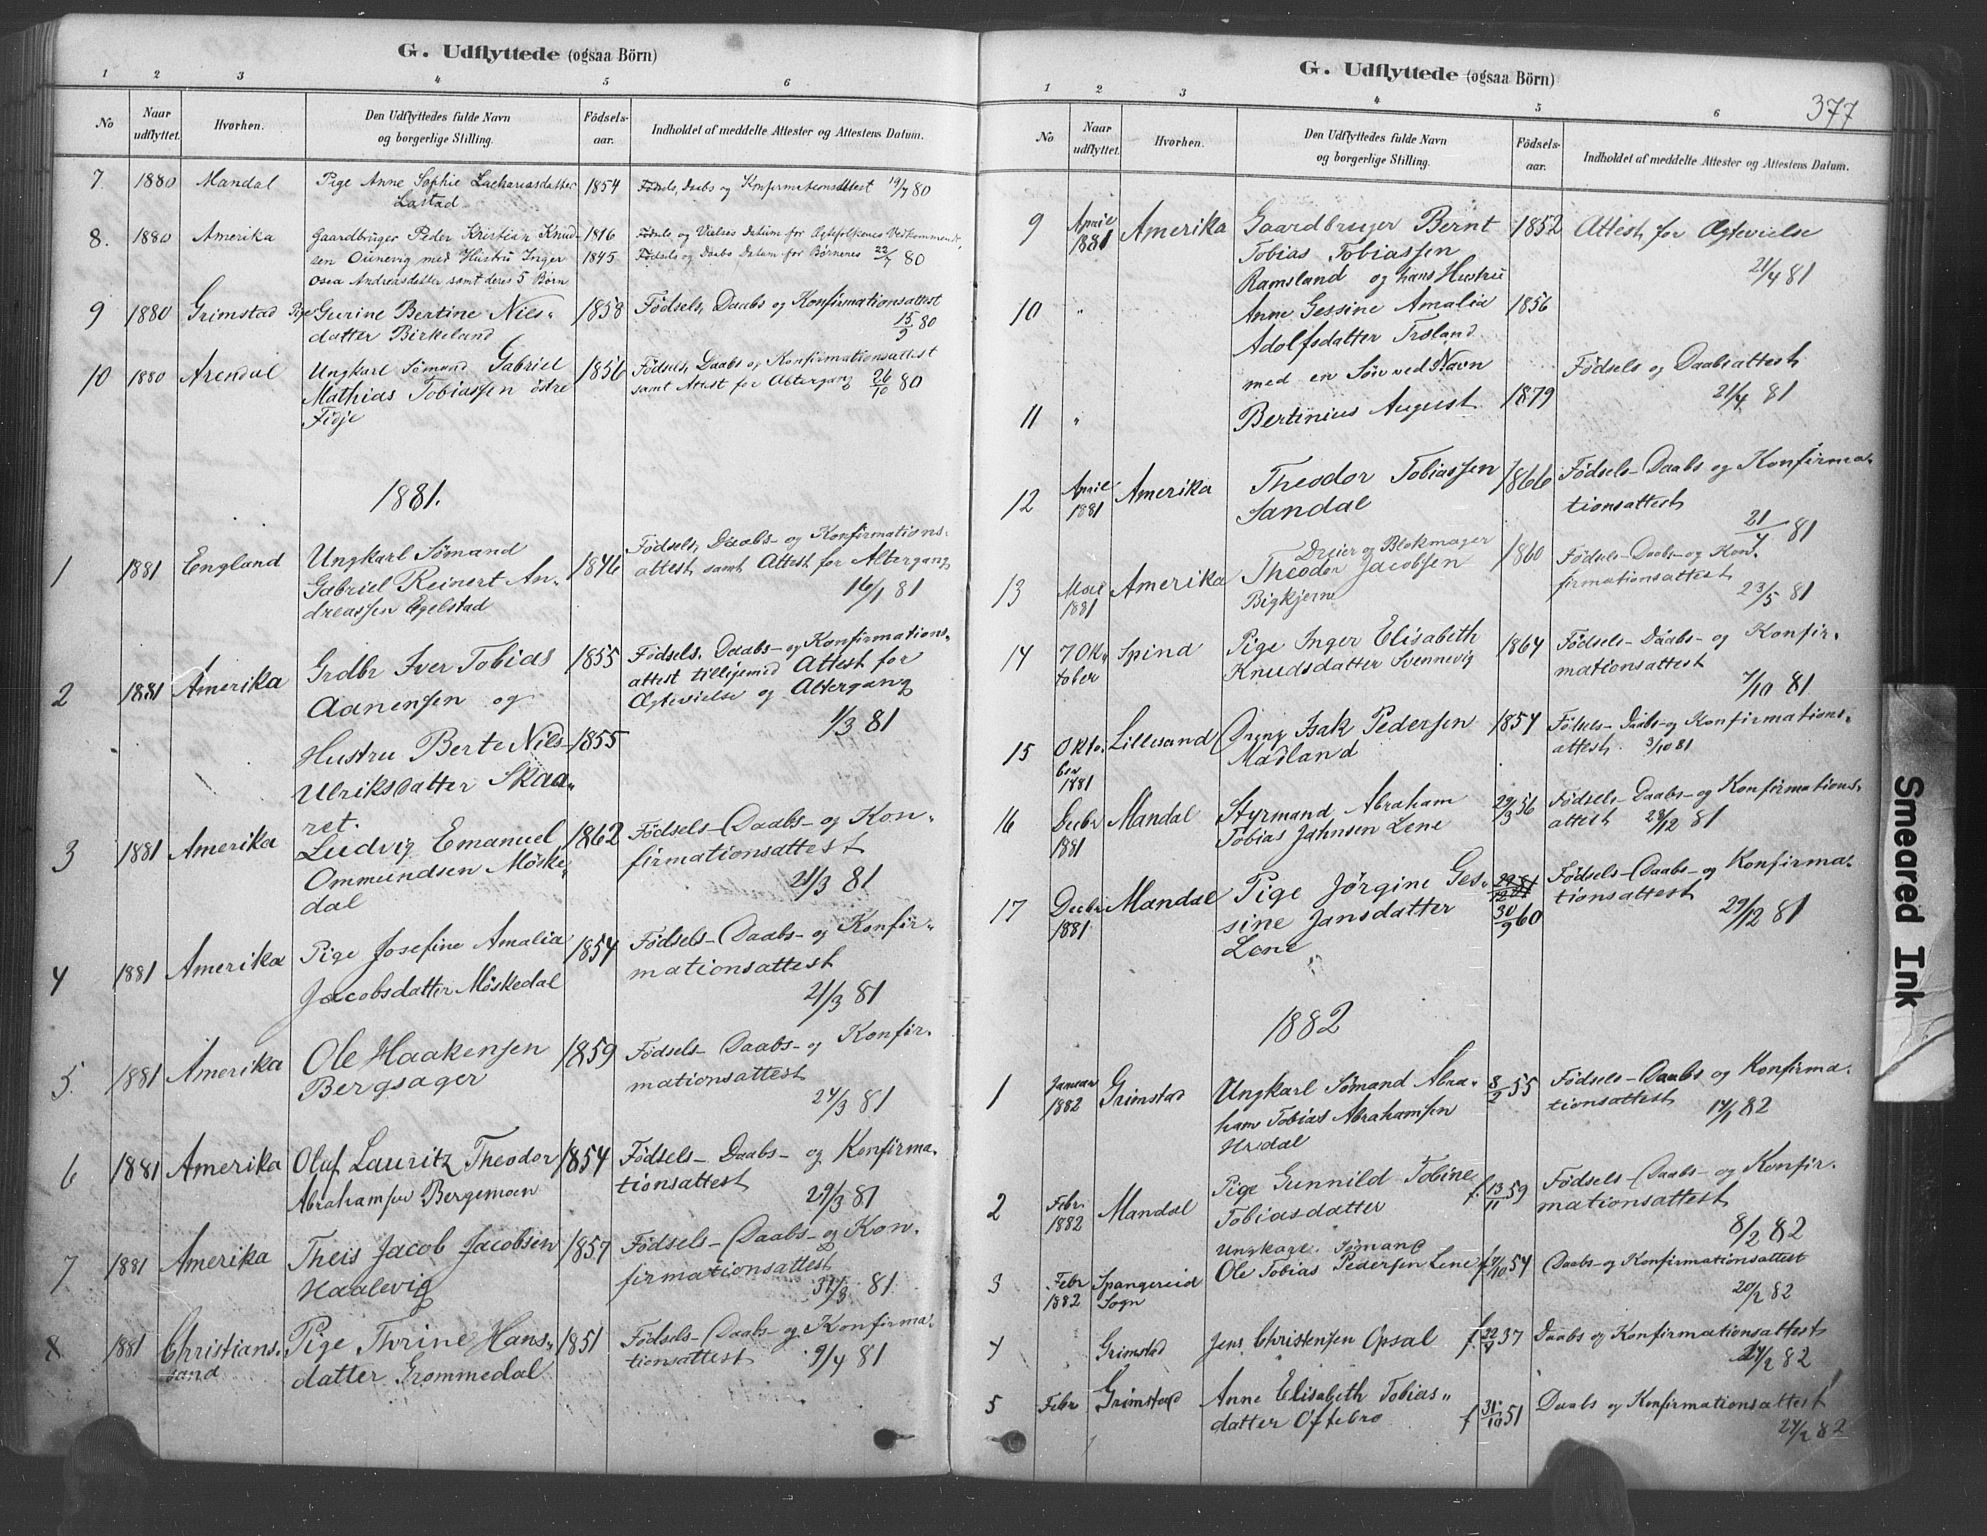 G. Udflyttede (ogsaa Börn)
1 2 3 4 5 6
No
Naar udflyttet.
Hvorhen.
Den Udflyttedes fulde Navn og borgerlige Stilling.
Födsels-aar.
Indholdet af meddelte Attester og Attestens Datum.
7. 1880 Mandal Pige Anne Sophie Zachariasdatter 1854 Fødsels, Daabs og Konfirmationsattest 19/7 80
Lastad
8. 1880 Amerika Gaardbruger Peder Kristian Knud- 1816 Fødsels og Vielses Datum for Ægtefolkenes Vedkommende,
sen Ounevig med Hustru Inger 1845 Fødsels og Daabs Datum for Børnenes 22/7 80
Osea Andreasdatter samt deres 5 Børn
9 1880 Grimstad Pige Gurine Bertine Niels- 1858 Fødsels, Daabs og Konfirmationsattest
datter Birkeland 15/9 80
10 1880 Arendal Ungkarl Sømand Gabriel 1856 Fødsels, Daabs og Konfirmationsattest
Mathias Tobiassen östre samt Attest for Altergang 26/10 80
Fidje
1881.
1 1881 England Ungkarl Sømand 1846 Fødsels, Daabs- og Konfirmations-
Gabriel Reinert An- attest samt Attest for Altergang
dreassen Egelstad 16/1 81
2 1881 Amerika Grdbr Iver Tobias 1855 Fødsels, Daabs- og Konfirmations-
Aanensen og attest tilligemed Attest for
Ægtevielse og Altergang
1/3 81
Hustru Berte Nils- 1855
Ulriksdatter Skaa-
ret.
3 1881 Amerika Ludvig Emanuel 1862 Fødsels- Daabs- og Kon-
Ommundsen Møske- firmationsattest
dal 21/3 81
4 1881 Amerika Pige Josefine Amalia 1854 Fødsels- Daabs- og Konfir-
Jacobsdatter Møskedal mationsattest
21/3 81
5. 1881 Amerika Ole Haakensen 1859 Fødsels- Daabs- og Konfir-
Bergsager mationsattest
24/3 81
6 1881 Amerika Oluf Lauritz Theodor 1854 Fødsels- Daabs- og Konfirma-
Abrahamsen Bergemoen tionsattest
29/3 81
7 1881 Amerika Theis Jacob Jacobsen 1857 Fødsels- Daabs- og Kon-
Haalevig firmationsattest
31/3 81
8 1881 Christians- Pige Thrine Hans- 1851 Fødsels- Daabs- og Konfirma-
sand datter Grommedal tionsattest 9/4 81
G. Udflyttede (ogsaa Börn)
377
1 2 3 4 5 6
No
Naar udflyttet.
Hvorhen.
Den Udflyttedes fulde Navn og borgerlige Stilling.
Födsels-aar.
Indholdet af meddelte Attester og Attestens Datum.
9 April Amerika Gaardbruger Bernt 1852 Attest for Ægtevielse
1881 Tobias Tobiassen 21/4 81
Ramsland og hans Hustru
10 " Anne Gessine Amalia 1856
Adolfsdatter Trøland
med en Søn ved Navn Fødsels og Daabsattest
11 " Bertinius August 1879 21/4 81
12 April Amerika Theodor Tobiassen 1866 Fødsels- Daabs og Konfirma-
1881 Sandal tionsattest
21/4 81
Dreier og Blokmager
13 Mai Amerika Theodor Jacobsen 1860 Fødsels- Daabs- og Kon-
1881 Bigkjern firmationsattest
23/5 81
14 7 Ok- Spind Pige Inger Elisabeth 1864 Fødsels- Daabs- og Konfir-
tober Knudsdatter Svennevig mationsattest
7/10 81
15 Okto- Lillesand Dreng Isak Pedersen 1854 Fødsels- Daabs- og Konfirmations-
ber Madland attest 3/10 81
1881
16 Decbr Mandal Styrmand Abraham 29/3 56 Fødsels- Daabs- og Konfirmations-
1881 Tobias Jahnsen Lene attest 28/12 81
17 Decbr Mandal Pige Jörgine Ges- Fødsels- Daabs- og Konfirma-
1881 sine Jansdatter 30/9 60 tionsattest
Lene 29/12 81
1882
1 Januar Grimstad Ungkarl Sømand Abra- 8/2 55 Fødsels- Daabs og Konfirma-
1882 ham Tobias Abrahamsen tionsattest 14/1 82
Urdal
2 Febr. Mandal Pige Gunnild Tobine f. 13/11 59 Fødsels- Daabs- og Konfir-
1882 Tobiasdatter mationsattest
8/2 82
Ungkarl. Sømand
3 Febr Spangereid Ole Tobias Pedersen Lene f 54 Daabs- og Konfirmationsattest
1882 Sogn 20/2 82
4 Grimstad Jens Christensen Opsal f. 37 Daabs og Konfirmationsattest
24/2 82
5 Febr Grimstad Anne Elisabeth Tobias- Daabs og Konfirmationsattest
datter Oftebro f 31/10 51 27/2 82
Smeared Ink